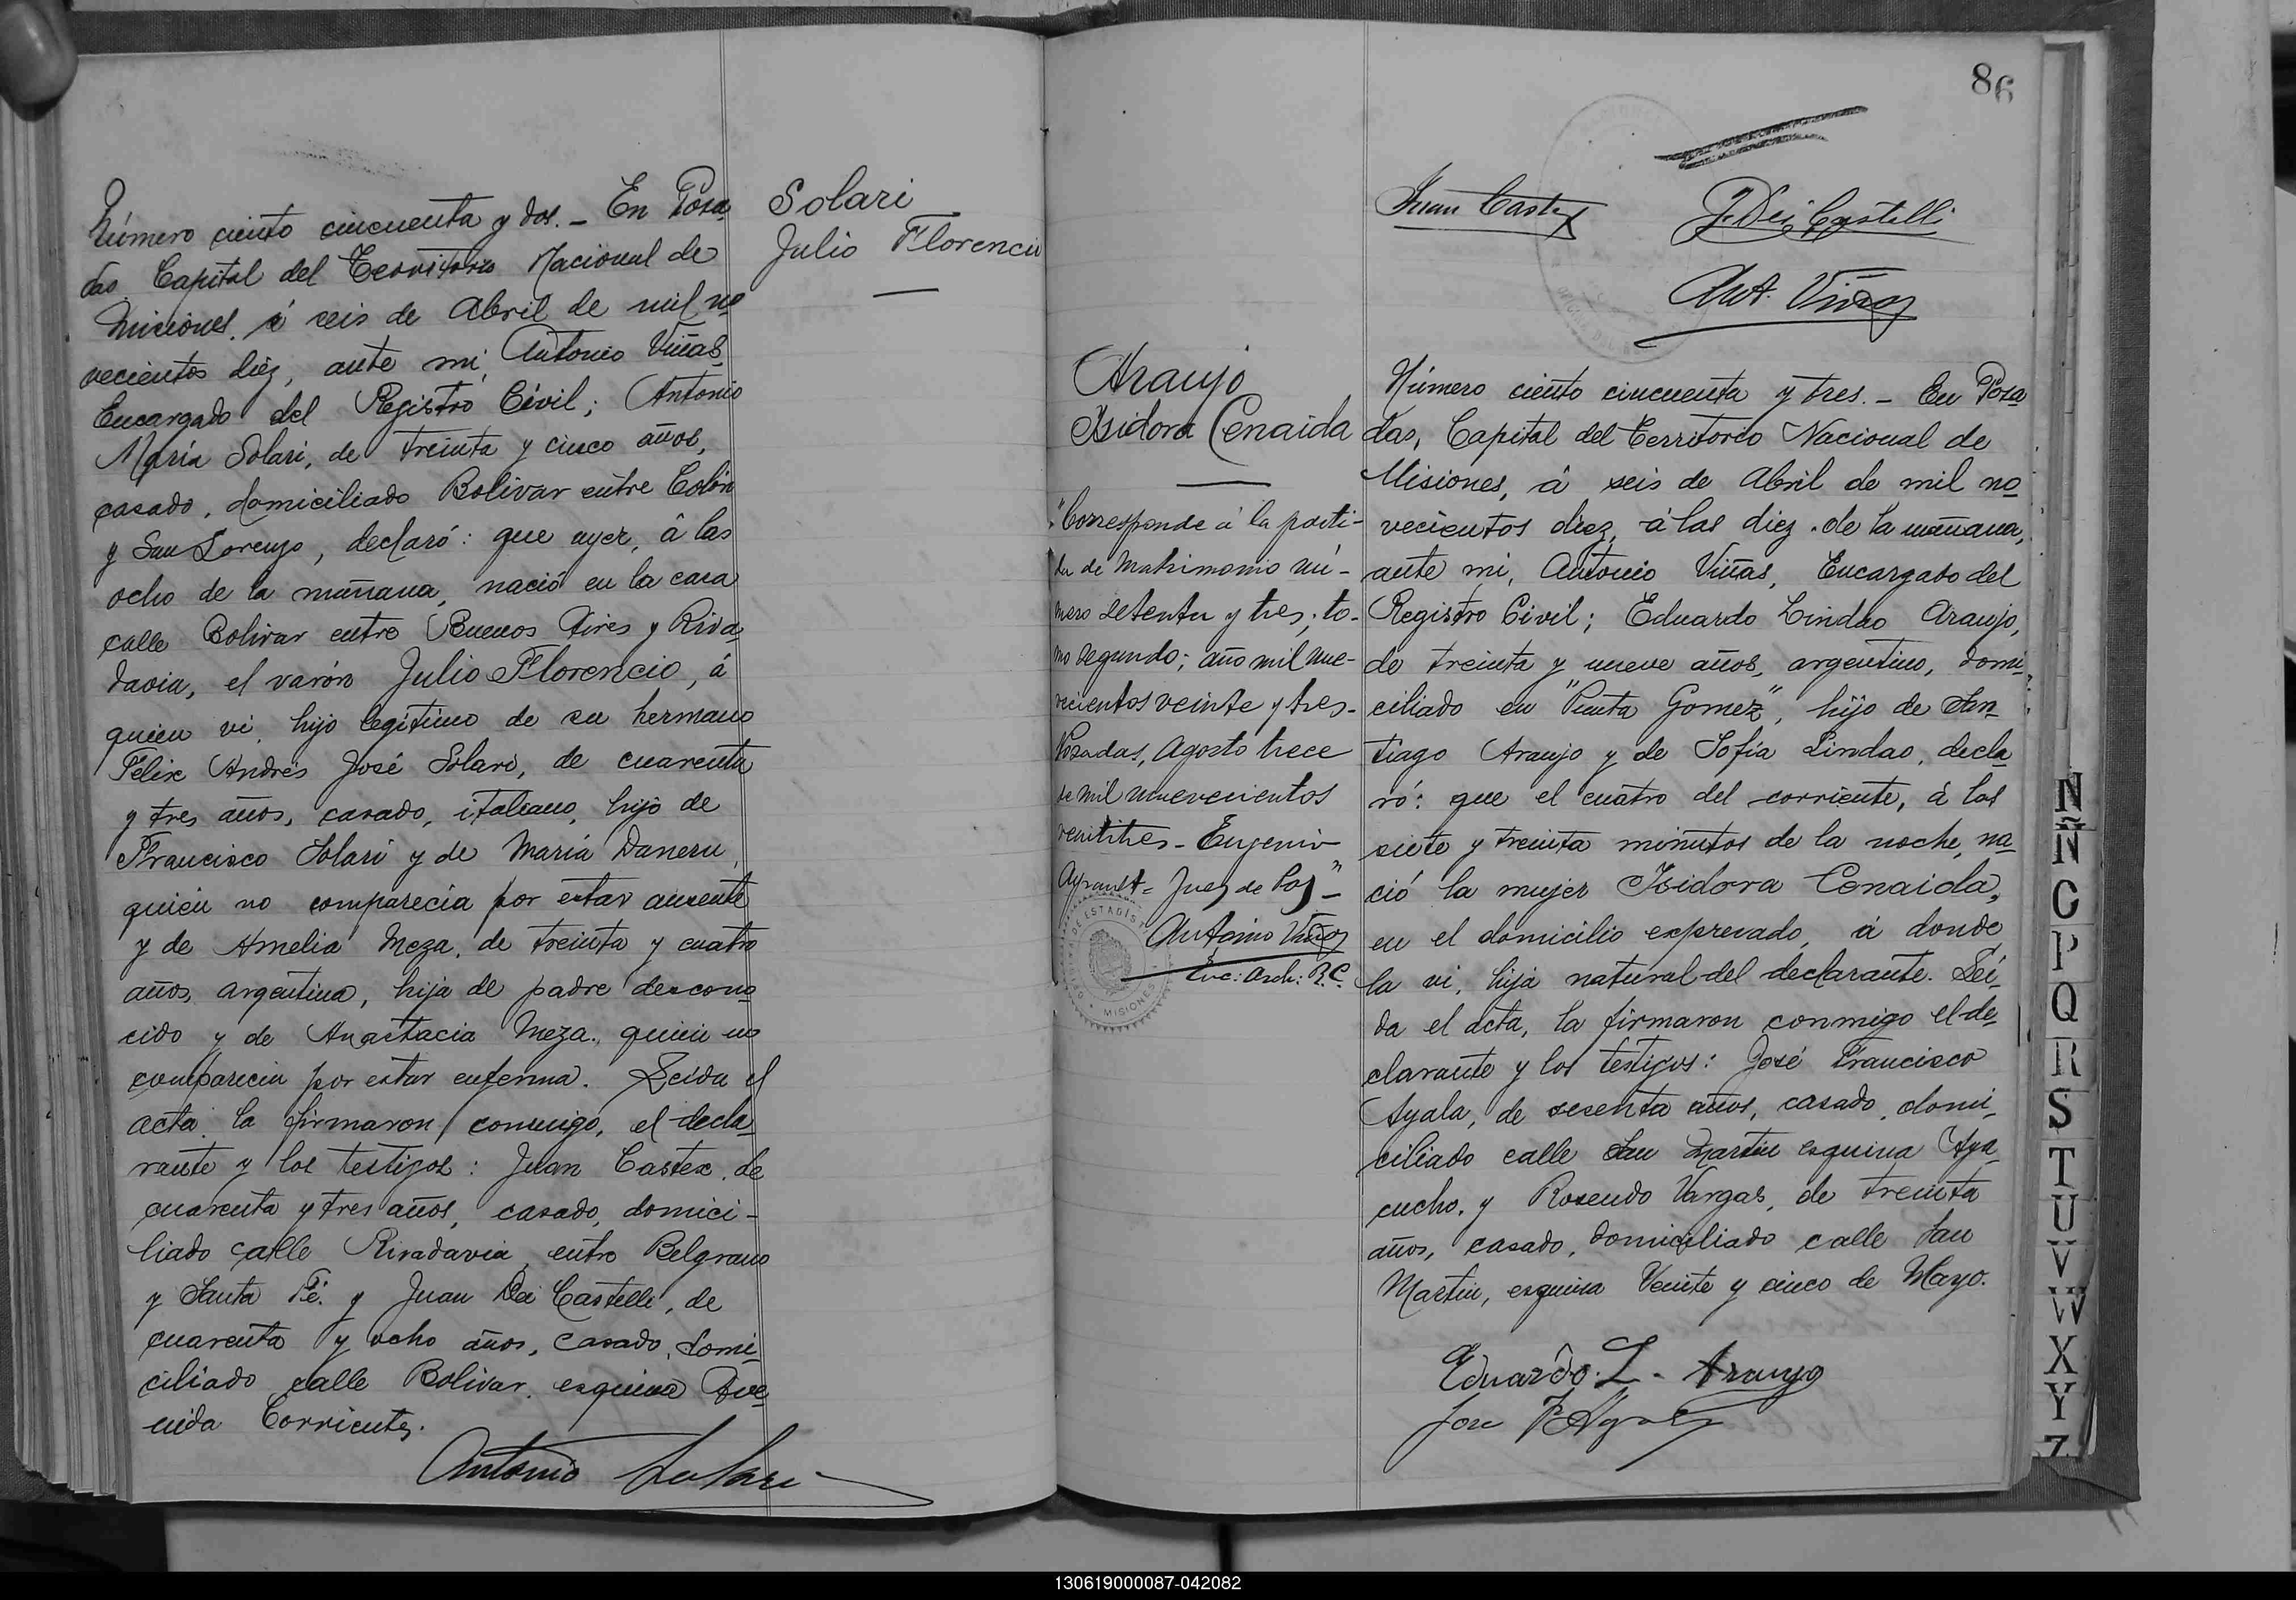 Número ciento cincuenta y dos. - En Posa
das Capital del Territorio Nacional de
Misiones, á seis de Abril de mil no
vecientos diéz, ante mi, Antonio Viñas
Encargado del Registro Civil; Antonio
María Solari, de treinta y cinco años,
casado, domiciliado Bolivar entre Colón
y San Lorenzo, declaró: que ayer, á las
ocho de la mañana, nació en la casa
calle Bolivar entre Buenos Aires y Riva
davia, el varón Julio Florencio, á
quien vi, hijo legítimo de su hermano
Felix Andrés José Solari, de cuarenta
y tres años, casado, italiano, hijo de
Francisco Solari y de María Daneru,
quién no comparecía por estar ausente
y de Amelia Meza, de treinta y cuatro
años, argentina, hija de padre descono
cido y de Anastacia Meza, quien no
comparecia por estar enferma. Leida el
acta la firmaron conmigo, el decla
rante y los testigos: Juan Castex, de
cuarenta y tres años, casado, domici-
liado calle Rivadavia entre Belgrano
y Santa Fé. y Juan Dei Castelli, de
cuarenta y ocho años, casado, domi
ciliado calle Bolivar, esquina Ave
nida Corrientes.
Antonio Solari
Solari
Julio Florencio
86
Juan Castex J. Dei Castelli
Ant. Viñas
Araujo
Isidora Cenaida
"Corresponde á la parti-
da de Matrimonio nú-
mero setenta y tres; to-
mo segundo; año mil nue-
vecientos veinte y tres-
Posadas, Agosto trece
de mil nuevecientos
veintitres - Eugenio
Ayrault = Juez de Paz" -
Antonio Viñas
Enc: Arch: R.C.
ESTADIS
MISIONES
Número ciento cincuenta y tres. - En Posa
das, Capital del Territorio Nacional de
Misiones, á seis de Abril de mil no
vecientos diez, á las diez de la mañana,
ante mi, Antonio Viñas, Encargado del
Registro Civil; Eduardo Lindao Araujo,
de treinta y nueve años, argentino, domi
ciliado en "Punta Gomez", hijo de San
tiago Araujo y de Sofía Lindao, decla
ró: que el cuatro del corriente, á las
siete y treinta minutos de la noche, na
ció la mujer Isidora Cenaida,
en el domicilio expresado, á donde
la vi, hija natural del declarante. Leí
da el acta, la firmaron conmigo el de
clarante y los testigos: José Francisco
Ayala, de sesenta años, casado, domi
ciliado calle San Martín esquina Aya
cucho. y Rosendo Vargas, de treinta
años, casado, domiciliado calle San
Martin, esquina Veinte y cinco de Mayo.
Eduardo. L. Araujo
Jose F Ayala
N
Ñ
O
P
Q
R
S
T
U
V
W
X
Y
Z
130619000087-042082